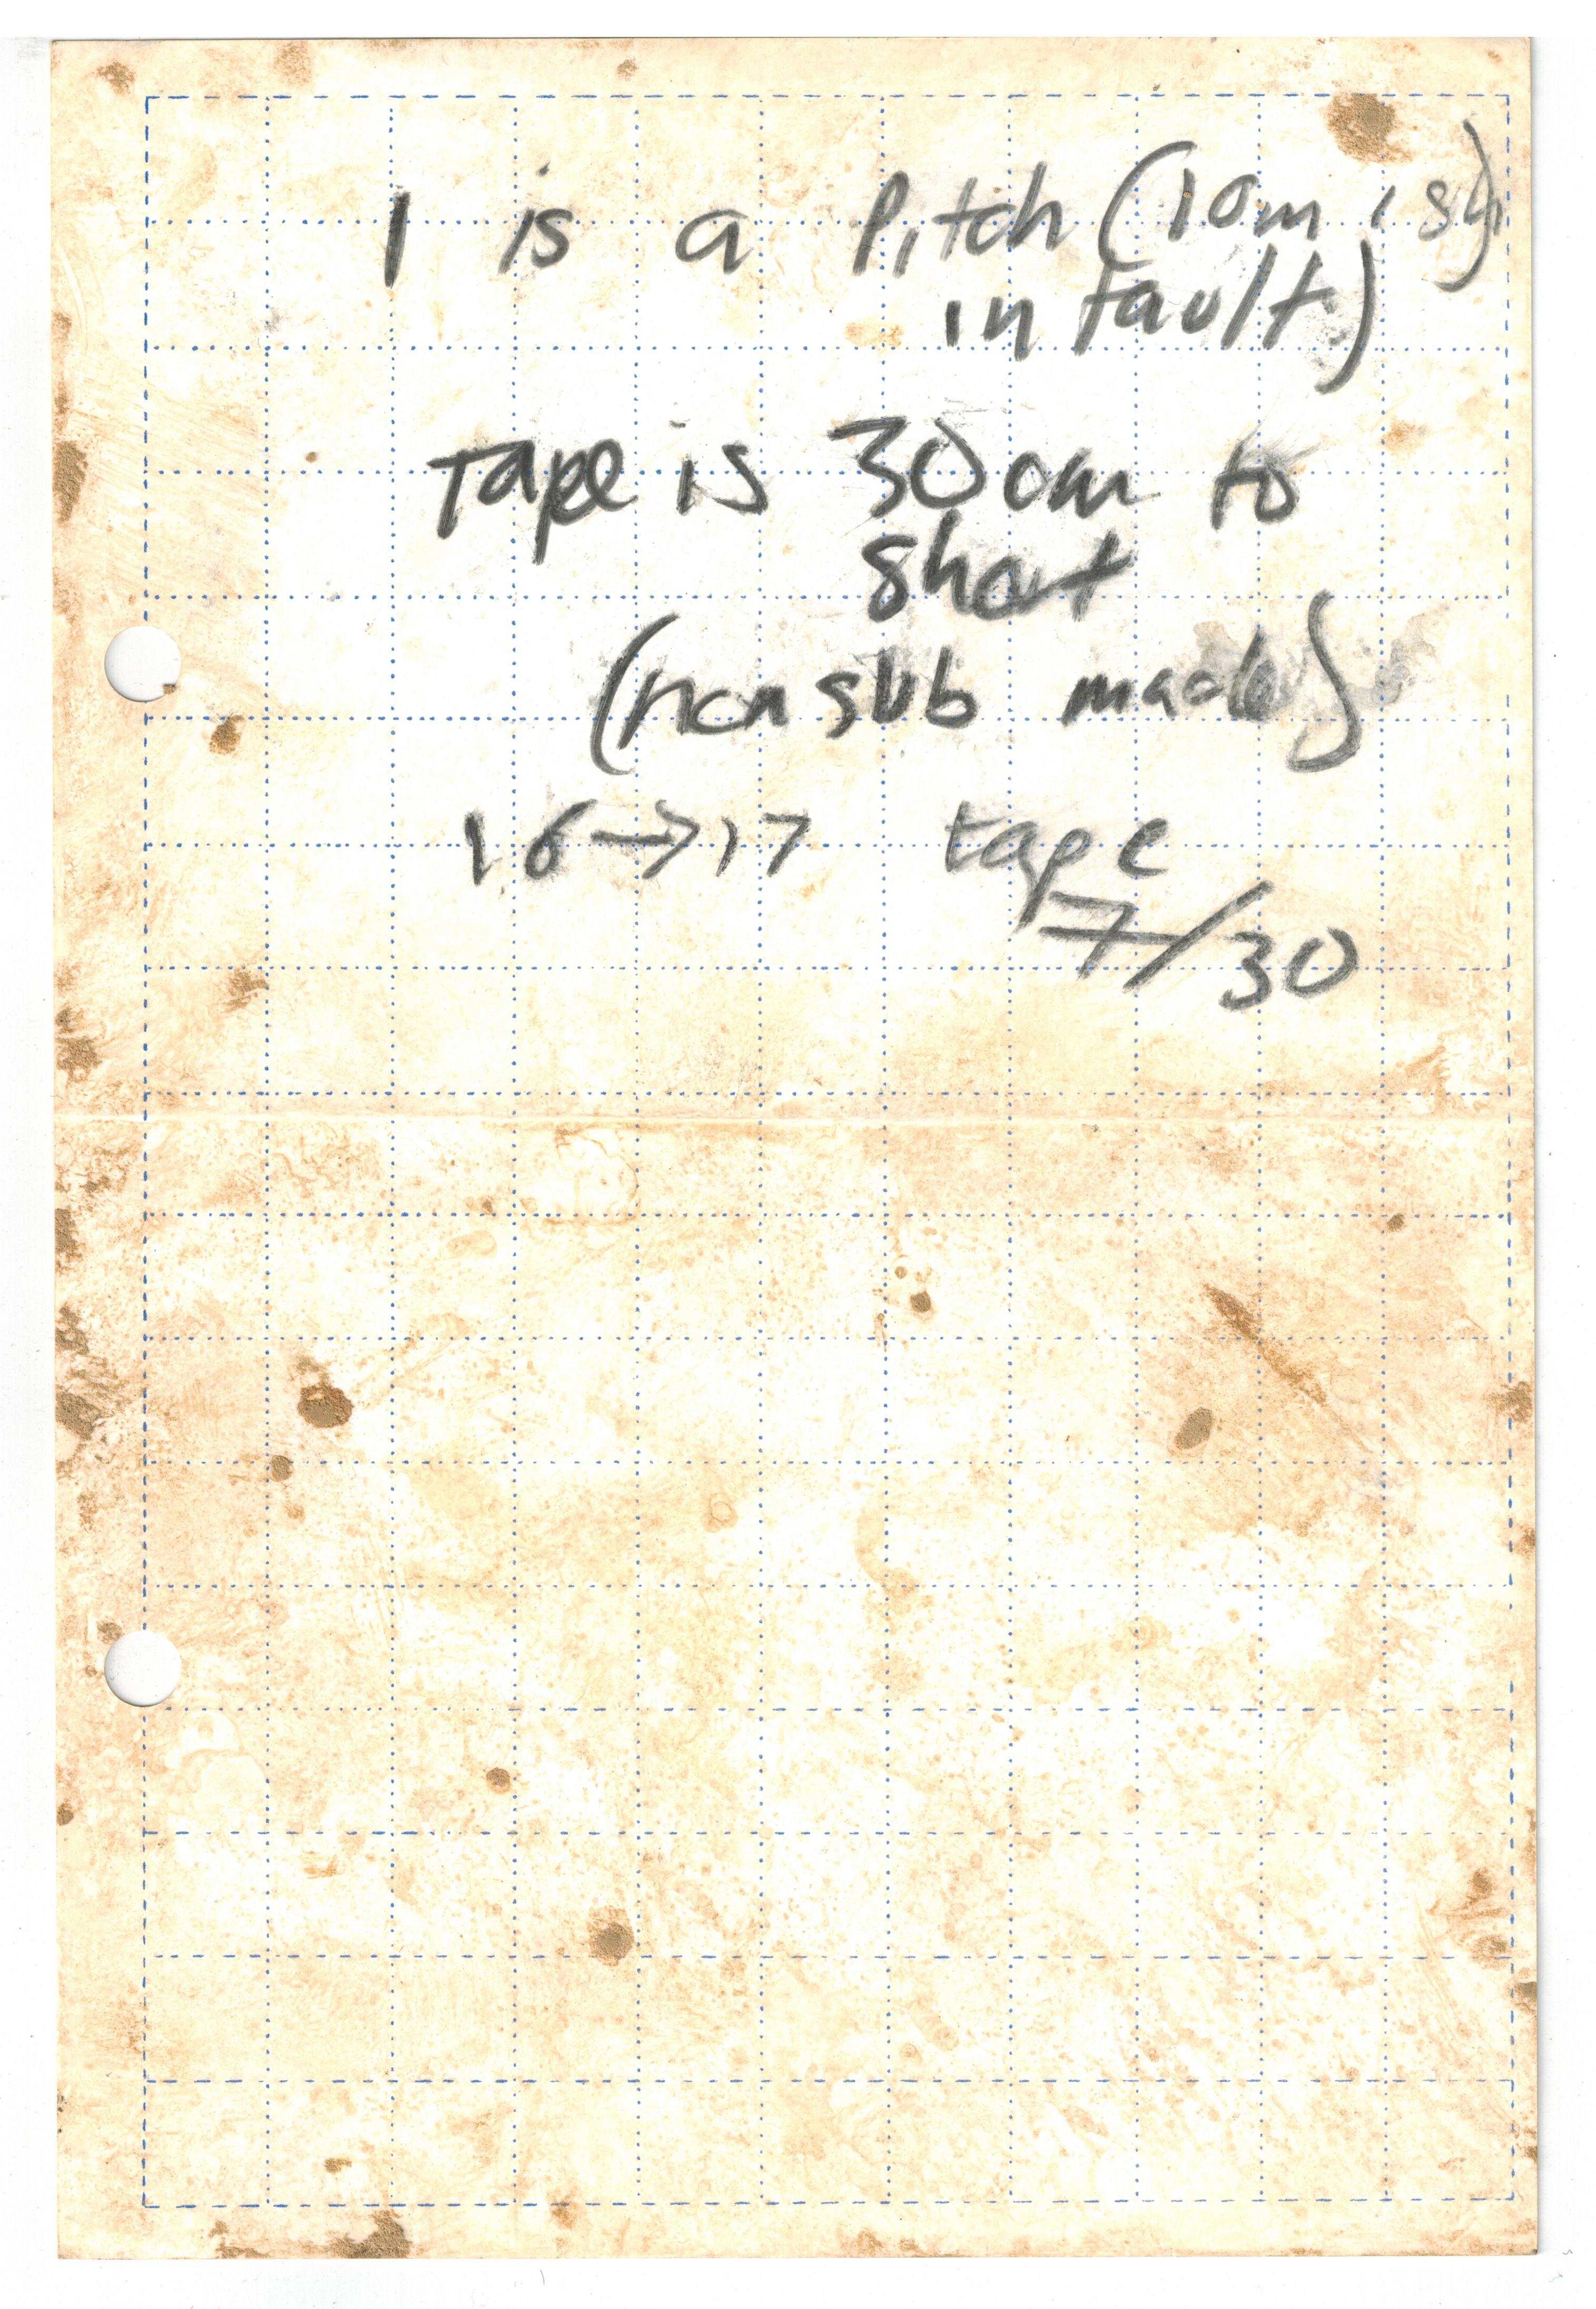 1 is a Pitch (10m ish)
in fault)
Tape is 30cm to
short
(non sub made)
16→17 tape
7/30